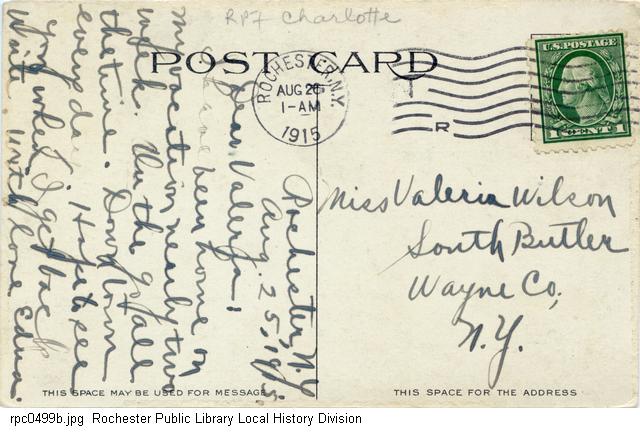 RP7 Charlotte
POST CARD
ROCHESTER, N.Y.
AUG 26
1-AM
1915
R
U.S. POSTAGE
1 CENT 1
Rochester, N.Y.
Aug. 25, 1915
Dear Valeria:
have been home on
my vacation nearly two
weeks. On the go all
the time. Down town
every day. Hope to see
you when I get back
Write. With love Edna.
Miss Valeria Wilson
South Butler
Wayne Co,
N.Y.
THIS SPACE MAY BE USED FOR MESSAGE
THIS SPACE FOR THE ADDRESS
rpc0499b.jpg Rochester Public Library Local History Division